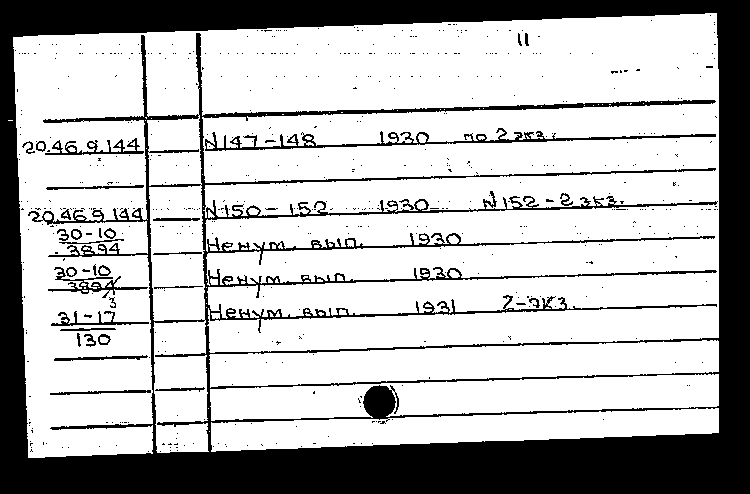 11
20.46.9.144 N147-148 1930 по 2 экз.
20.46.9.144 N150-152 1930 N152-2 экз.
30-10
3894 Ненум. вып. 1930
30-10
3894/3 Ненум. вып. 1930
31-17
130 Ненум. вып. 1931 2-экз.